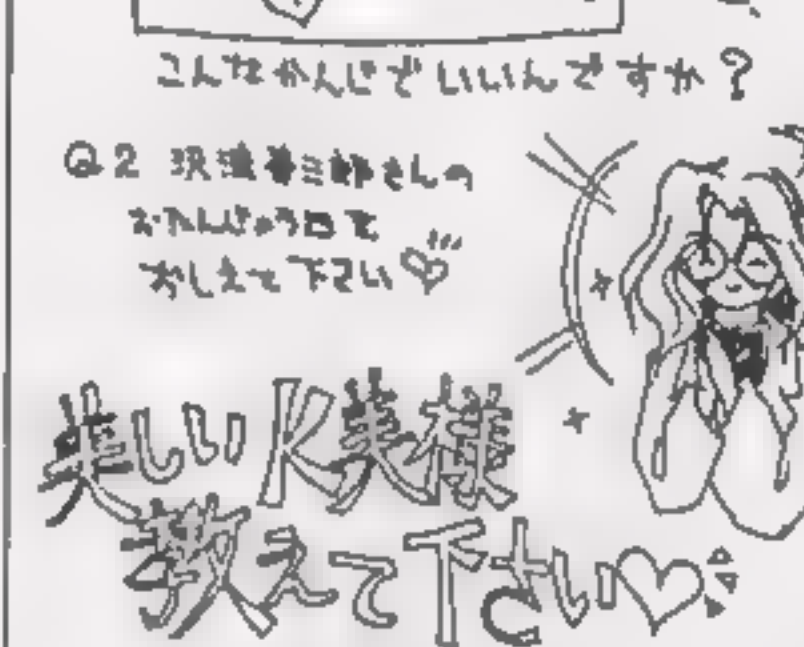 こんなかんじでいいんですか?
Q2 沢渡 三郎さんの
おたんじょう日を
おしえて下さい♡
美しいK美様
教えて下さい♡